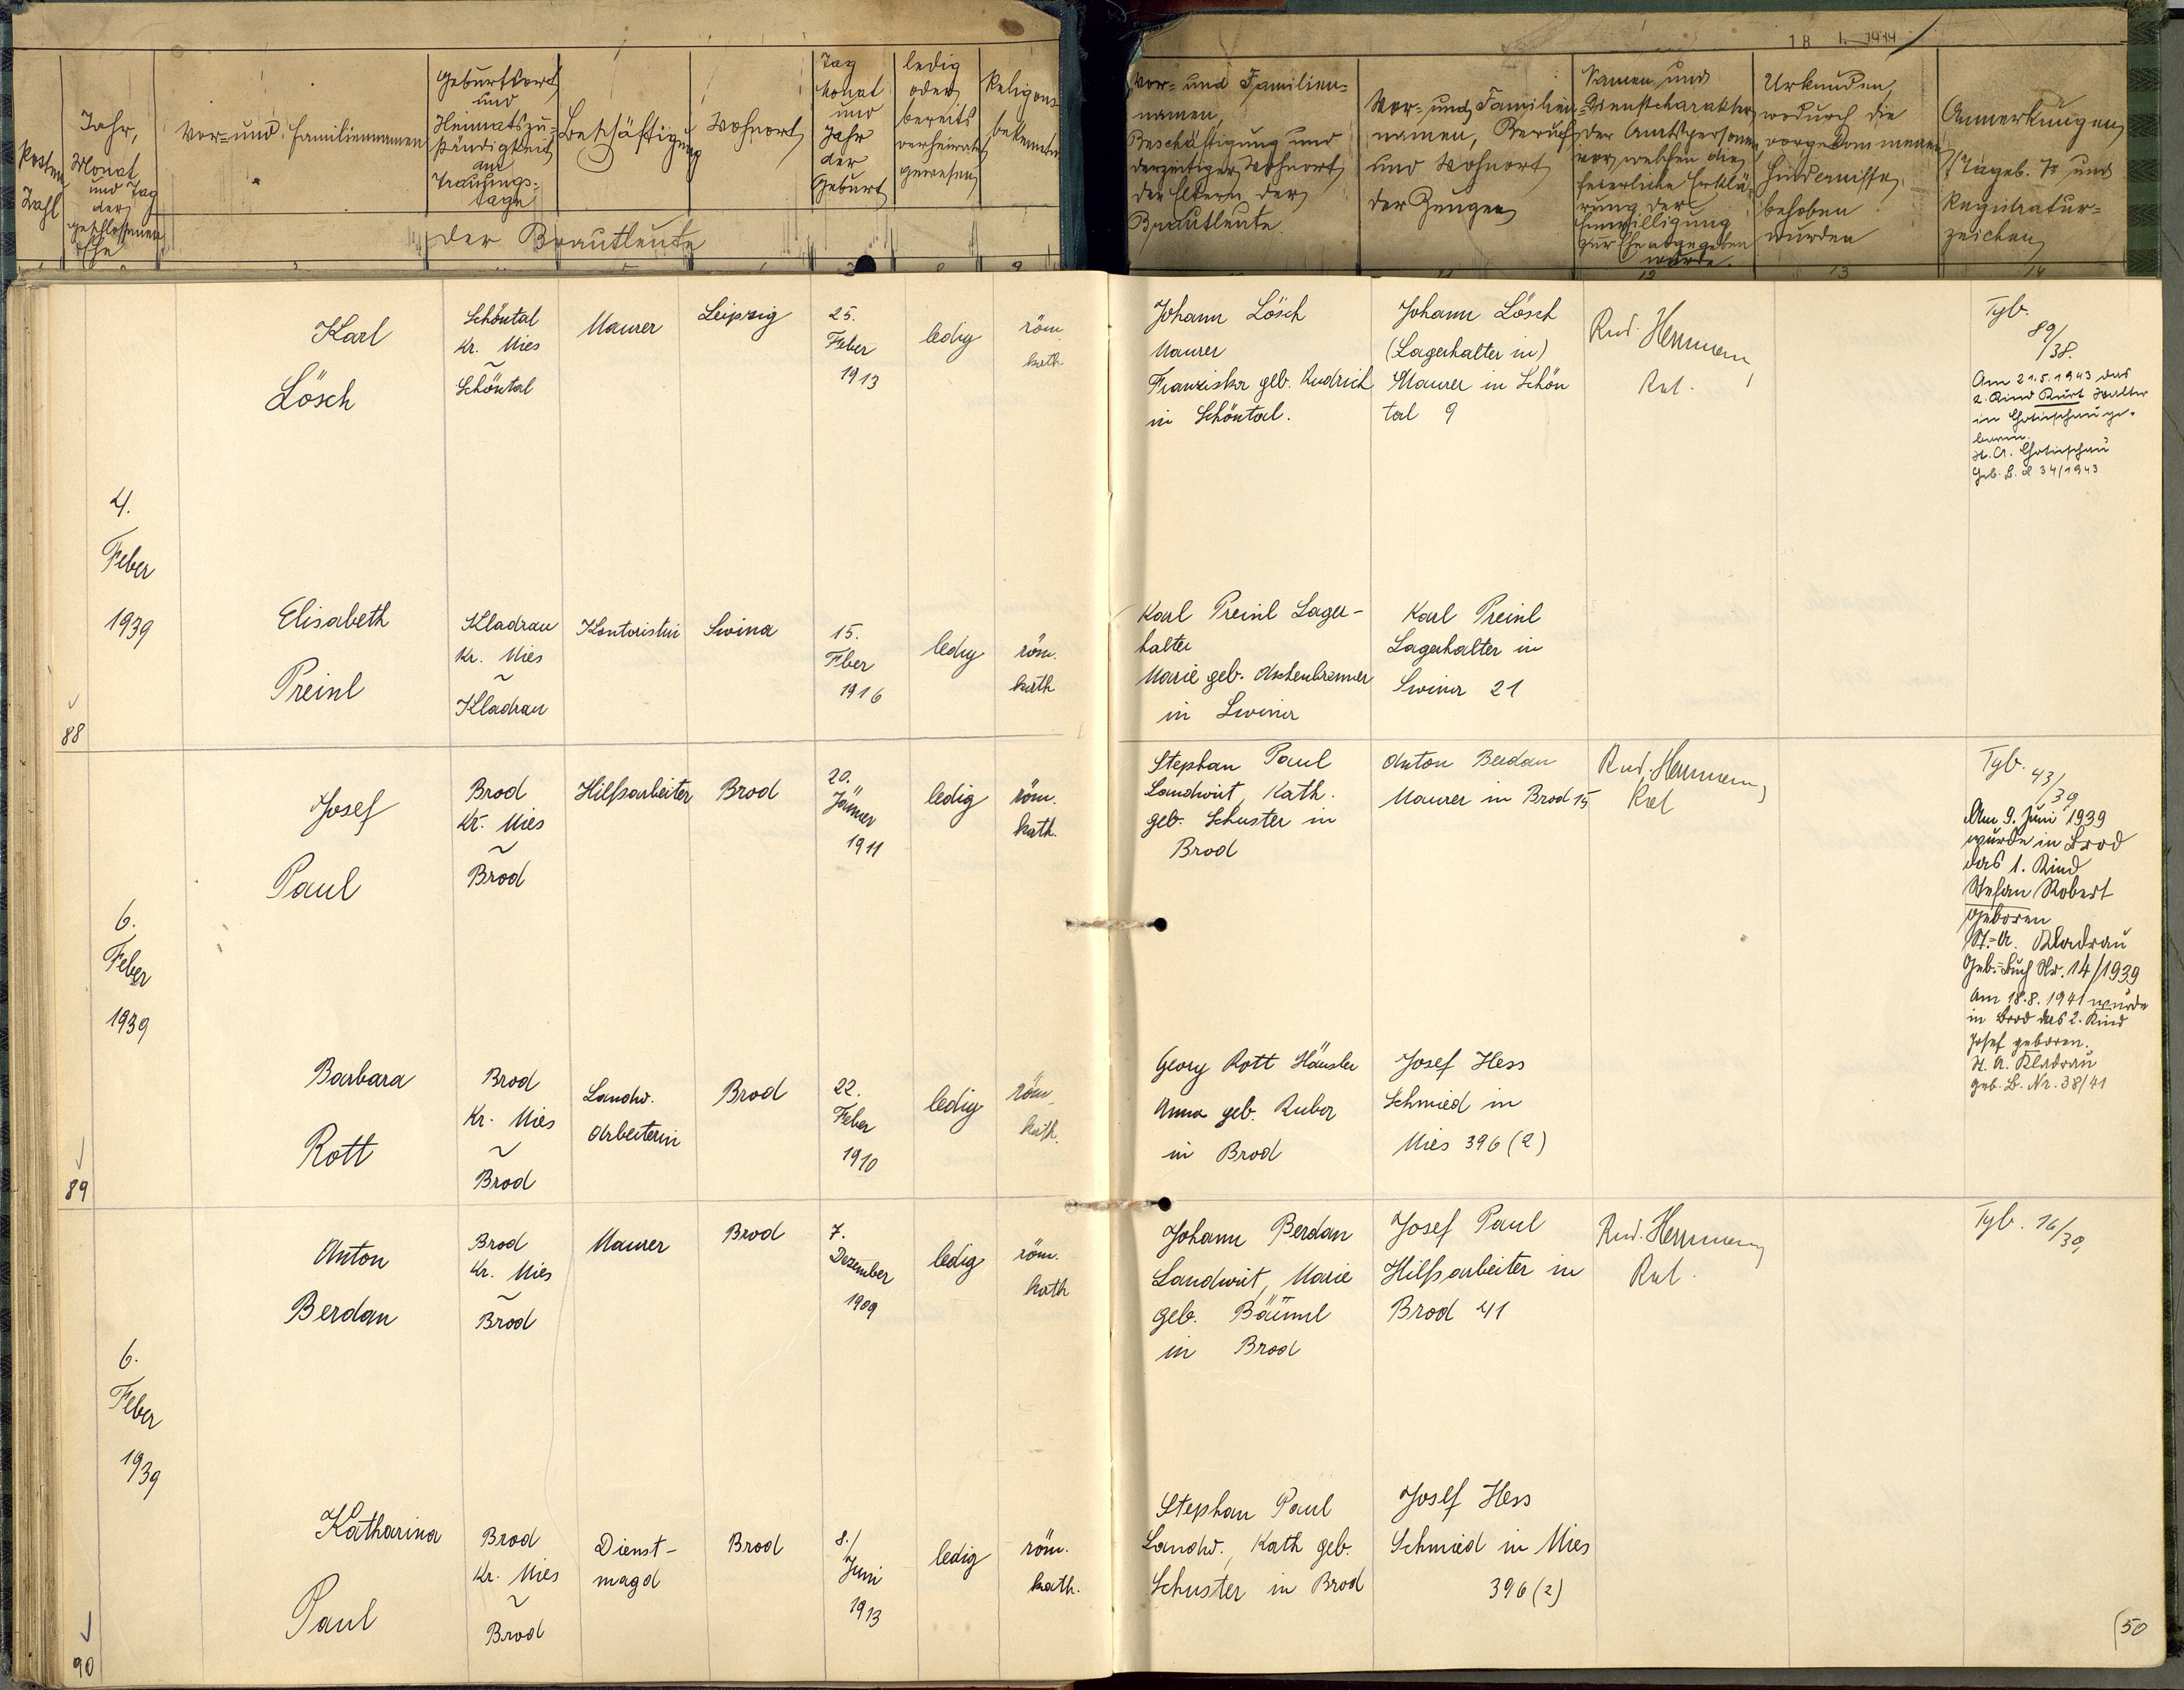 18 1. 1944
Posten
Zahl
Jahr,
Monat
und Tag
der
geschlossenen
Ehe
Vor- und Familiennamen
Geburtsort
und
Heimatszu-
ständigkeit
am
Trauungs-
tage
Beschäftigung
Wohnort
der Brautleute
Tag
Monat
und
Jahr
der
Geburt
ledig
oder
bereits
verheiratet
gewesen
Religions-
bekenntnis
Vor- und Familien-
namen,
Beschäftigung und
derzeitiger Wohnort
der Eltern der
Brautleute.
Vor- und Familien-
namen, Beruf
und Wohnort
der Zeugen
Namen und
Dienstcharakter
der Amtsperson
vor welcher die
feierliche Erklä-
rung der
Einwilligung
zur Ehe abgegeben
wurde.
Urkunden,
wodurch die
vorgekommenen
Hindernisse
behoben
wurden
Anmerkungen
(Tageb. Z. und
Registratur-
zeichen
9
12
13
14
88
4.
Feber
1939
Karl
Lösch
Schöntal
Kr. Mies
~
Schöntal
Maurer
Leipzig
25.
Feber
1913
ledig
röm.
kath.
Johann Lösch
Maurer
Franziska geb. Rudrich
in Schöntal.
Johann Lösch
(Lagerhalter in)
Maurer in Schön
tal 9
Rud. Herrmann
Rat.
Tgb.
89/
/38.
Am 21.5.1943 das
2. Kind Kurt Walter
in Chotieschau ge-
boren.
St. A. Chotieschau
Geb. B. 34/1943
Elisabeth
Preinl
Kladrau
Kr. Mies
~
Kladrau
Kontoristin
Swina
15.
Feber
1916
ledig
röm.
kath
Karl Preinl Lager-
halter
Marie geb. Aschenbrenner
in Swina
Karl Preinl
Lagerhalter in
Swina 21
89
6.
Feber
1939
Josef
Paul
Brod
Kr. Mies
~
Brod
Hilfsarbeiter
Brod
20.
Jänner
1911
ledig
röm.
kath.
Stephan Paul
Landwirt, Kath.
geb. Schuster in
Brod
Anton Berdan
Maurer in Brod 15
Rud. Herrmann
Rat
Tgb. 43/
/39
Am 9. Juni 1939
wurde in Brod
das 1. Kind
Stefan Robert
geboren
St.-A. Kladrau
Geb.-Buch Nr. 14/1939
Am 18.8.1941 wurde
in Brod das 2. Kind
Josef geboren.
St. A. Kladrau
Geb. B. Nr. 38/41
Barbara
Rott
Brod
Kr. Mies
~
Brod
Landw.
Arbeiterin
Brod
22.
Feber
1910
ledig
röm.
kath.
Georg Rott Häusler
Anna geb.
in Brod
Josef Hess
Schmied in
Mies 396 (2)
90
6.
Feber
1939
Anton
Berdan
Brod
Kr. Mies
~
Brod
Maurer
Brod
7.
Dezember
1909
ledig
röm.
kath
Johann Berdan
Landwirt, Marie
geb. Bäuml
in Brod
Josef Paul
Hilfsarbeiter in
Brod 41
Rud. Herrmann
Rat.
Tgb. 16/39
Katharina
Paul
Brod
Kr. Mies
~
Brod
Dienst-
magd
Brod
8./
Juni
1913
ledig
röm.
kath.
Stephan Paul
Landw., Kath geb.
Schuster in Brod
Josef Hess
Schmied in Mies
396 (2)
50